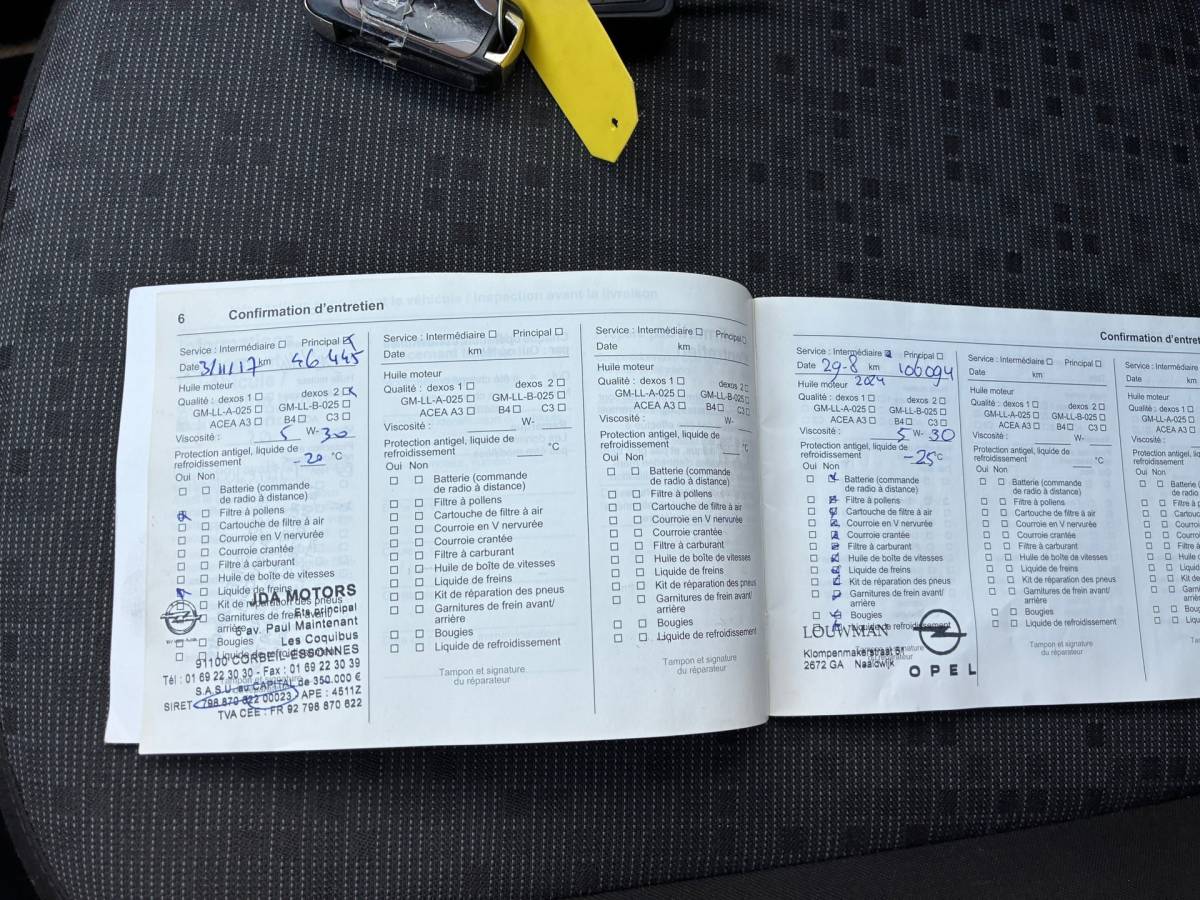 6 Confirmation d'entretien
Service : Intermédiaire ☐ Principal ☒
Date 3/11/17 km 46 445
Huile moteur
Qualité : dexos 1 ☐ dexos 2 ☒
GM-LL-A-025 ☐ GM-LL-B-025 ☐
ACEA A3 ☐ B4 ☐ C3 ☐
Viscosité : 5 W- 30
Protection antigel, liquide de
refroidissement -20 °C
Oui Non
☐ ☐ Batterie (commande
de radio à distance)
☒ ☐ Filtre à pollens
☐ ☐ Cartouche de filtre à air
☐ ☐ Courroie en V nervurée
☐ ☐ Courroie crantée
☐ ☐ Filtre à carburant
☐ ☐ Huile de boîte de vitesses
☒ ☐ Liquide de freins
☐ Kit de réparation des pneus
☐ Garnitures de frein avant/
arrière
☐ Bougies
☐ ☐ Liquide de refroidissement
JDA MOTORS
Ets principal
av. Paul Maintenant
Les Coquibus
91100 CORBEIL-ESSONNES
Tél : 01 69 22 30 30 - Fax : 01 69 22 30 39
S.A.S.U au CAPITAL de 350.000 €
SIRET 798 870 622 00023 APE : 4511Z
TVA CEE : FR 92 798 870 622
Service : Intermédiaire ☐ Principal ☐
Date km
Huile moteur
Qualité : dexos 1 ☐ dexos 2 ☐
GM-LL-A-025 ☐ GM-LL-B-025 ☐
ACEA A3 ☐ B4 ☐ C3 ☐
Viscosité : W-
Protection antigel, liquide de
refroidissement °C
Oui Non
☐ ☐ Batterie (commande
de radio à distance)
☐ ☐ Filtre à pollens
☐ ☐ Cartouche de filtre à air
☐ ☐ Courroie en V nervurée
☐ ☐ Courroie crantée
☐ ☐ Filtre à carburant
☐ ☐ Huile de boîte de vitesses
☐ ☐ Liquide de freins
☐ ☐ Kit de réparation des pneus
☐ ☐ Garnitures de frein avant/
arrière
☐ ☐ Bougies
☐ ☐ Liquide de refroidissement
Tampon et signature
du réparateur
Service : Intermédiaire ☐ Principal ☐
Date km
Huile moteur
Qualité : dexos 1 ☐ dexos 2 ☐
GM-LL-A-025 ☐ GM-LL-B-025 ☐
ACEA A3 ☐ B4 ☐ C3 ☐
Viscosité : W-
Protection antigel, liquide de
refroidissement °C
Oui Non
☐ ☐ Batterie (commande
de radio à distance)
☐ ☐ Filtre à pollens
☐ ☐ Cartouche de filtre à air
☐ ☐ Courroie en V nervurée
☐ ☐ Courroie crantée
☐ ☐ Filtre à carburant
☐ ☐ Huile de boîte de vitesses
☐ ☐ Liquide de freins
☐ ☐ Kit de réparation des pneus
☐ ☐ Garnitures de frein avant/
arrière
☐ ☐ Bougies
☐ ☐ Liquide de refroidissement
Tampon et signature
du réparateur
Confirmation d'entret
Service : Intermédiaire ☒ Principal ☐
Date 29-8 km 106094
Huile moteur 2024
Qualité : dexos 1 ☐ dexos 2 ☐
GM-LL-A-025 ☐ GM-LL-B-025 ☐
ACEA A3 ☐ B4 ☐ C3 ☐
Viscosité : 5 W- 30
Protection antigel, liquide de
refroidissement -25 °C
Oui Non
☐ ☒ Batterie (commande
de radio à distance)
☐ ☒ Filtre à pollens
☐ ☒ Cartouche de filtre à air
☐ ☒ Courroie en V nervurée
☐ ☒ Courroie crantée
☐ ☒ Filtre à carburant
☐ ☒ Huile de boîte de vitesses
☐ ☒ Liquide de freins
☐ ☒ Kit de réparation des pneus
☐ ☒ Garnitures de frein avant/
arrière
☐ ☒ Bougies
☐ ☒ Liquide de refroidissement
LOUWMAN
Klompenmakerstraat 51
2672 GA Naaldwijk
OPEL
Service : Intermédiaire ☐ Principal ☐
Date km
Huile moteur
Qualité : dexos 1 ☐ dexos 2 ☐
GM-LL-A-025 ☐ GM-LL-B-025 ☐
ACEA A3 ☐ B4 ☐ C3 ☐
Viscosité : W-
Protection antigel, liquide de
refroidissement °C
Oui Non
☐ ☐ Batterie (commande
de radio à distance)
☐ ☐ Filtre à pollens
☐ ☐ Cartouche de filtre à air
☐ ☐ Courroie en V nervurée
☐ ☐ Courroie crantée
☐ ☐ Filtre à carburant
☐ ☐ Huile de boîte de vitesses
☐ ☐ Liquide de freins
☐ ☐ Kit de réparation des pneus
☐ ☐ Garnitures de frein avant/
arrière
☐ ☐ Bougies
☐ ☐ Liquide de refroidissement
Tampon et signature
du réparateur
Service : Intermédiaire
Date km
Huile moteur
Qualité : dexos 1 ☐
GM-LL-A-025 ☐
ACEA A3 ☐
Viscosité :
Protection antigel, li
refroidissement
Oui Non
☐ ☐ Batterie
de radio
☐ ☐ Filtre à
☐ ☐ Cartouc
☐ ☐ Courroie
☐ ☐ Courroie
☐ ☐ Filtre à
☐ ☐ Huile de
☐ ☐ Liquide
☐ ☐ Kit de ré
☐ ☐ Garni
arrière
☐ ☐ Boug
☐ ☐ Liqui